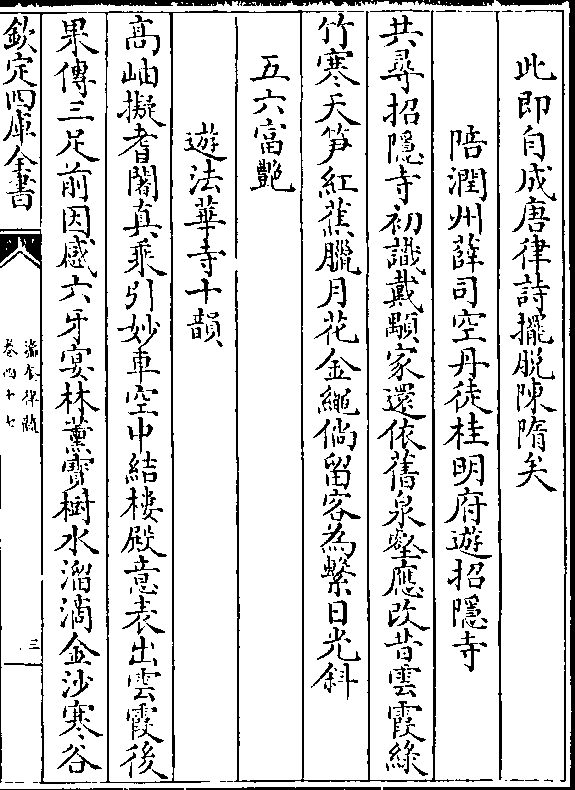 此即自成唐律詩擺脫陳隋矣
陪潤州薛司空丹徒桂明府遊招隱寺
共尋招隱寺初識戴顒家還依舊泉壑應改昔雲霞綠
竹寒天笋紅蕉臘月花金繩倘留客為繫日光斜
五六富艷
遊法華寺十韻
高岫擬耆闍真乘引妙車空中結樓殿意表出雲霞後
果傳三足前因感六牙宴林薰寶樹水溜滴金沙寒谷
欽定四庫全書
瀛奎律髓
卷四十七
三